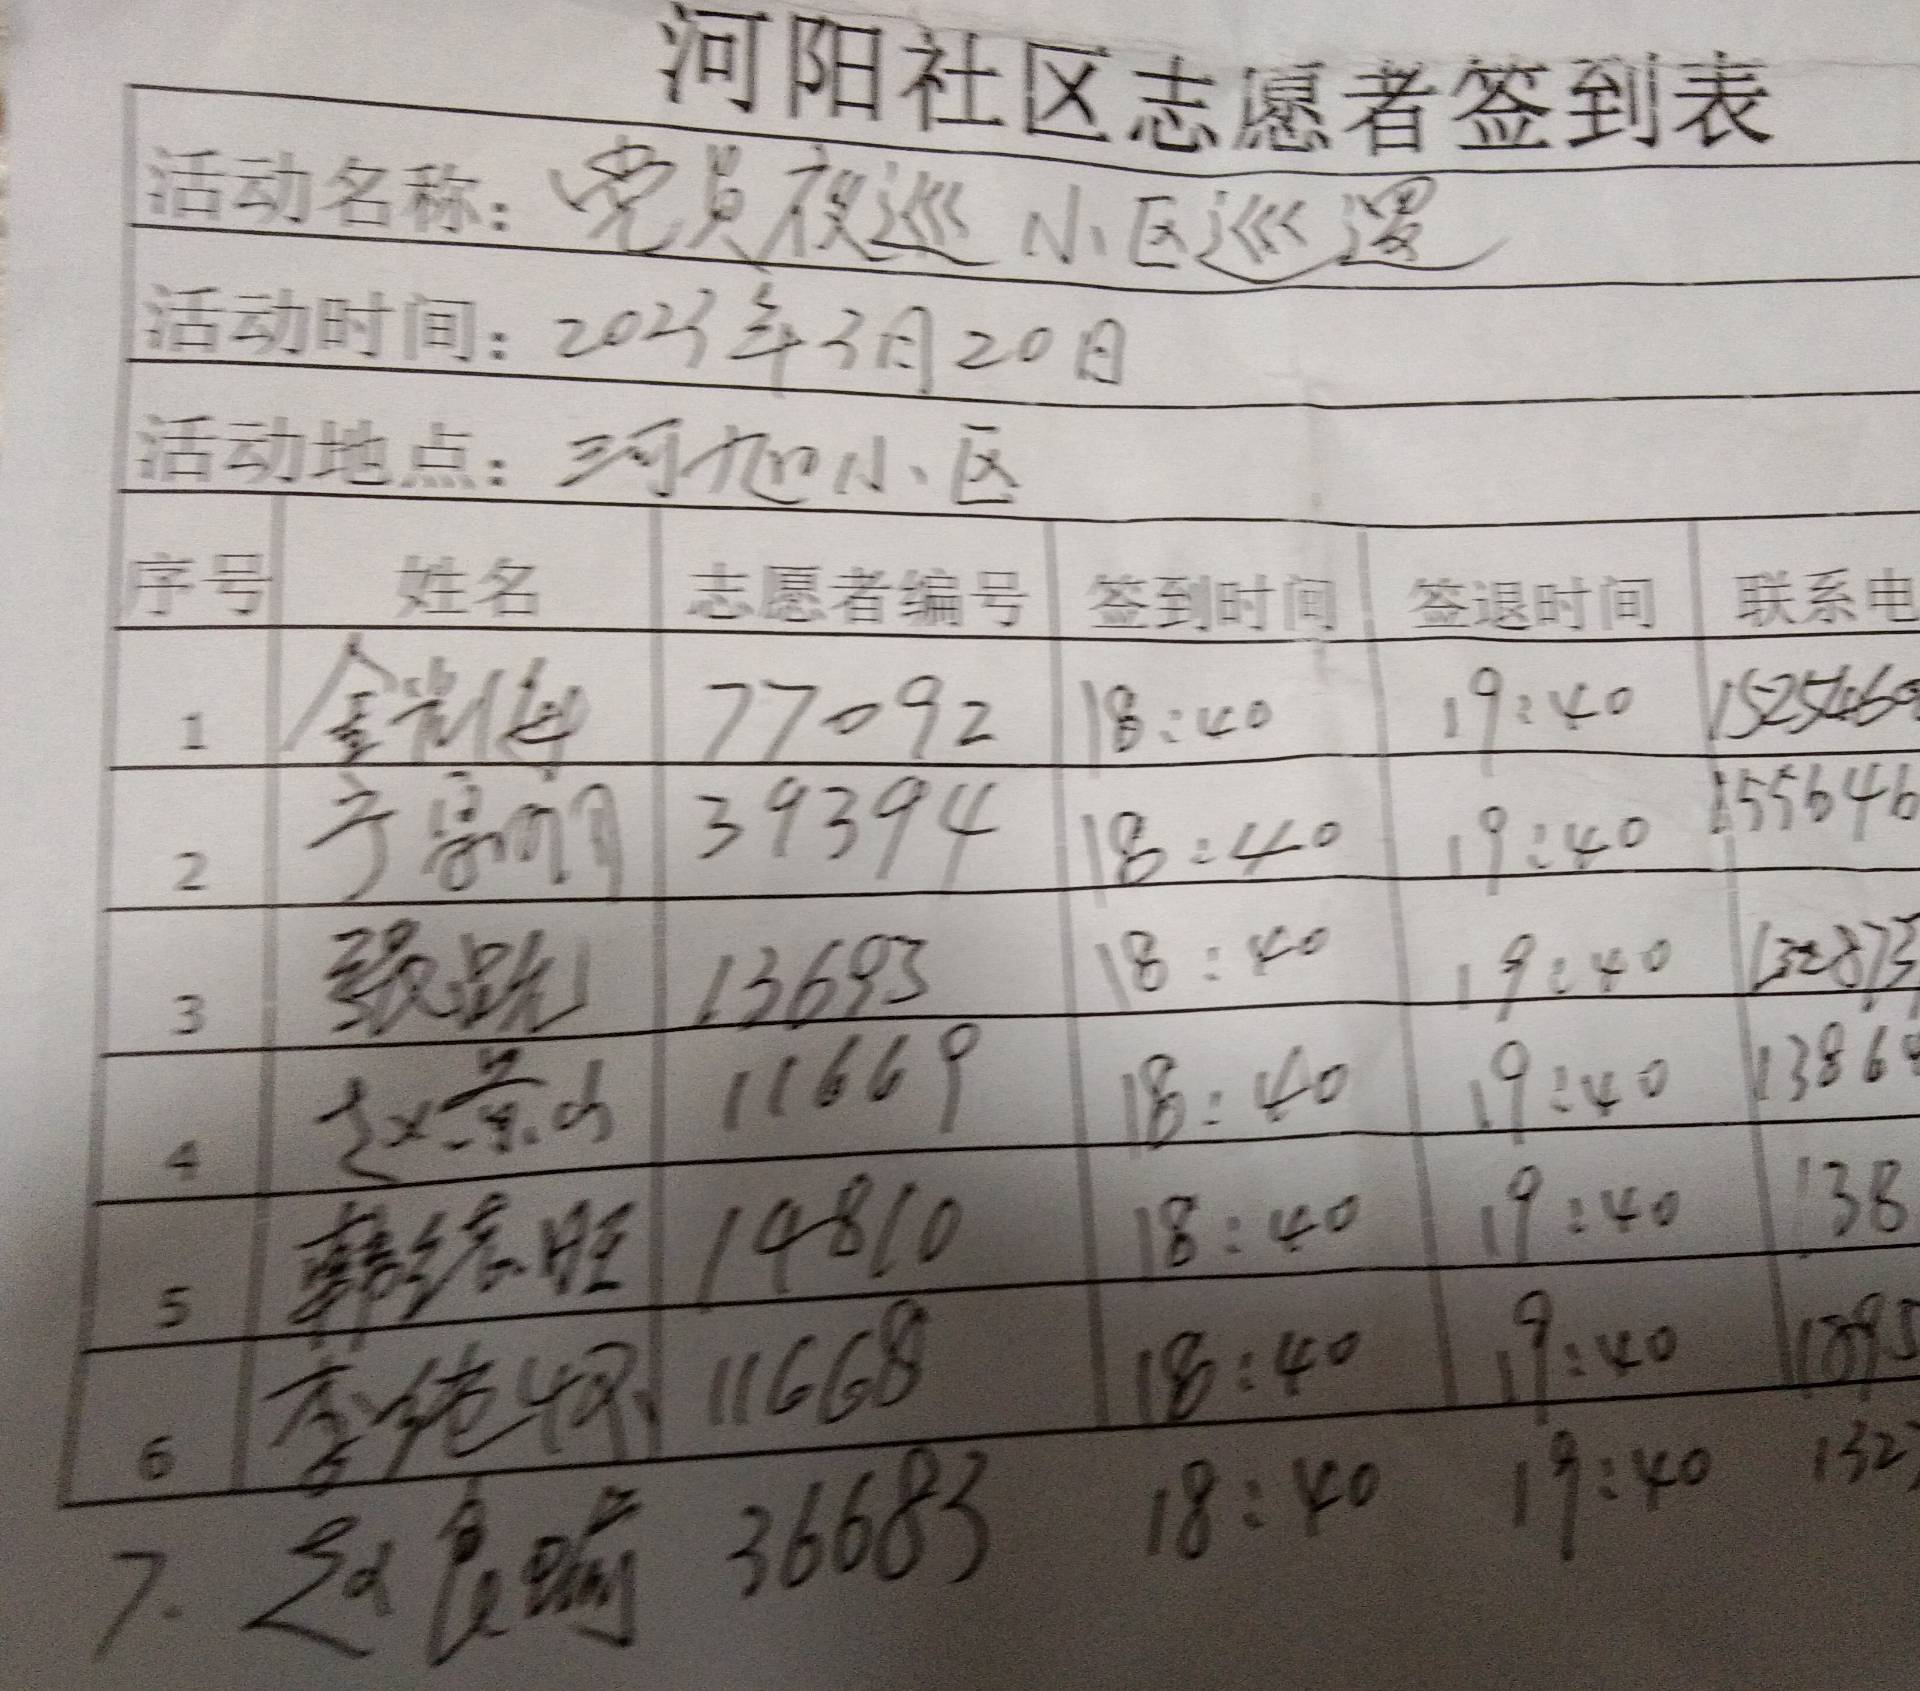 河阳社区志愿者签到表
活动名称：党员夜巡 小区巡逻
活动时间：2023年3月20日
活动地点：河旭小区
序号 姓名 志愿者编号 签到时间 签退时间 联系电
1 金 77092 18:40 19:40 1525460
2 于 明 39394 18:40 19:40 155646
3 张 13693 18:40 19:40 132873
4 赵景山 11669 18:40 19:40 1386
5 韩绪旺 14810 18:40 19:40 138
6 李纯 11668 18:40 19:40 1395
7. 赵良 36683 18:40 19:40 1327